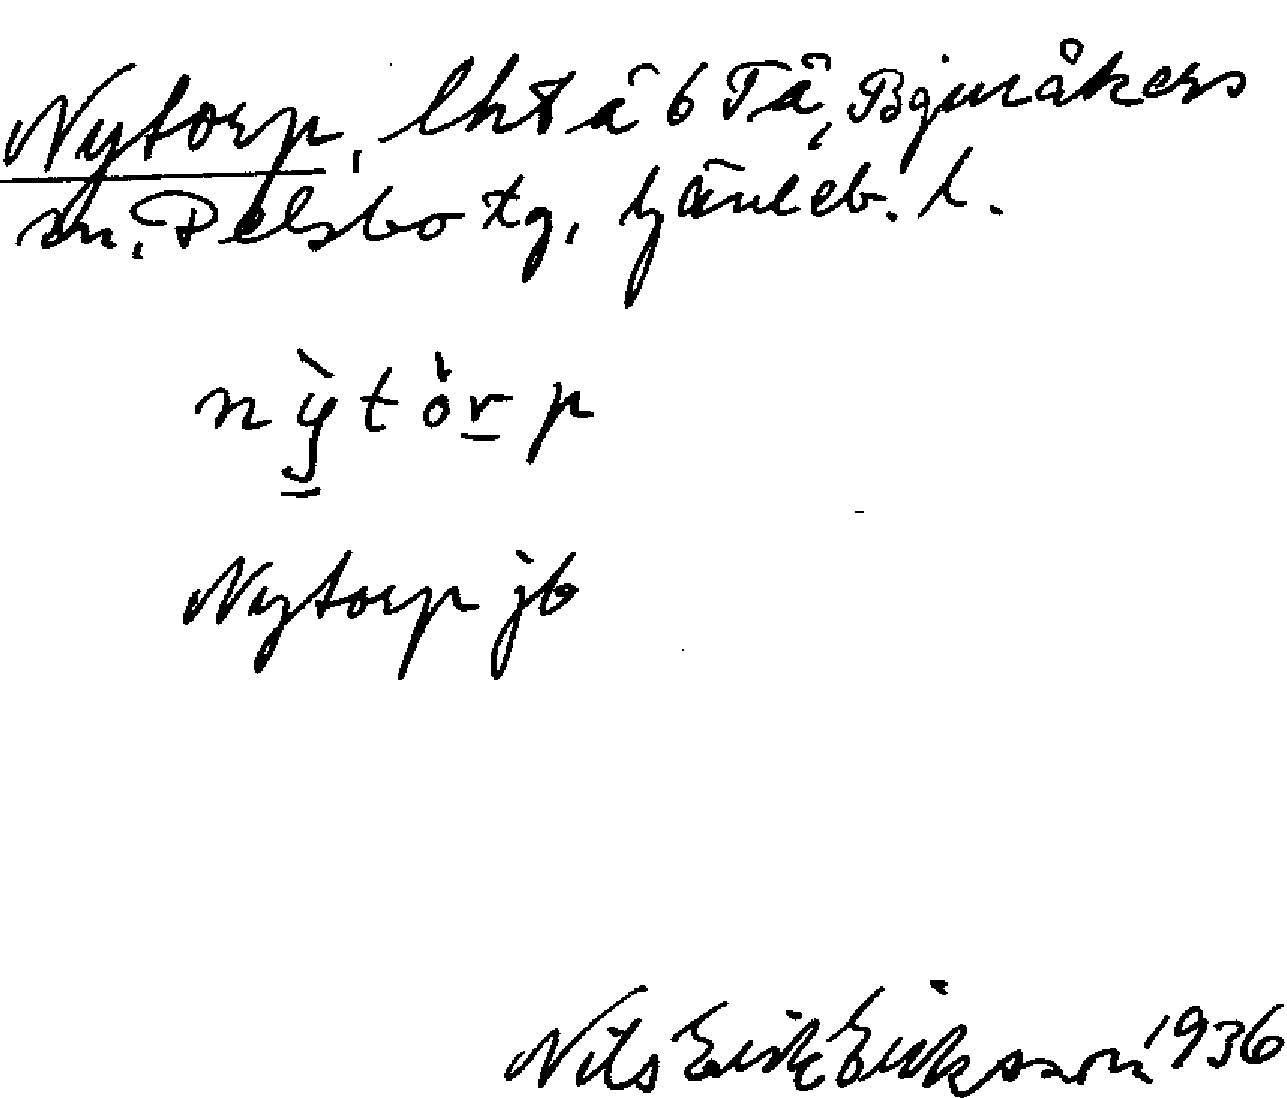 Nytorp, lht å 6 Tå, Bjuråkers
sn, Delsbo tg, Gävleb. l.
nỳtòrp
Nytorp jb
Nils Erik Eriksson 1936